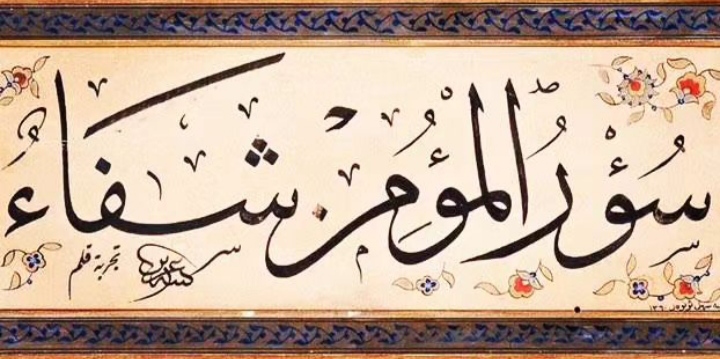 سُؤْرُ المُؤْمِنْ شِفَاءٌ
تجربة قلم